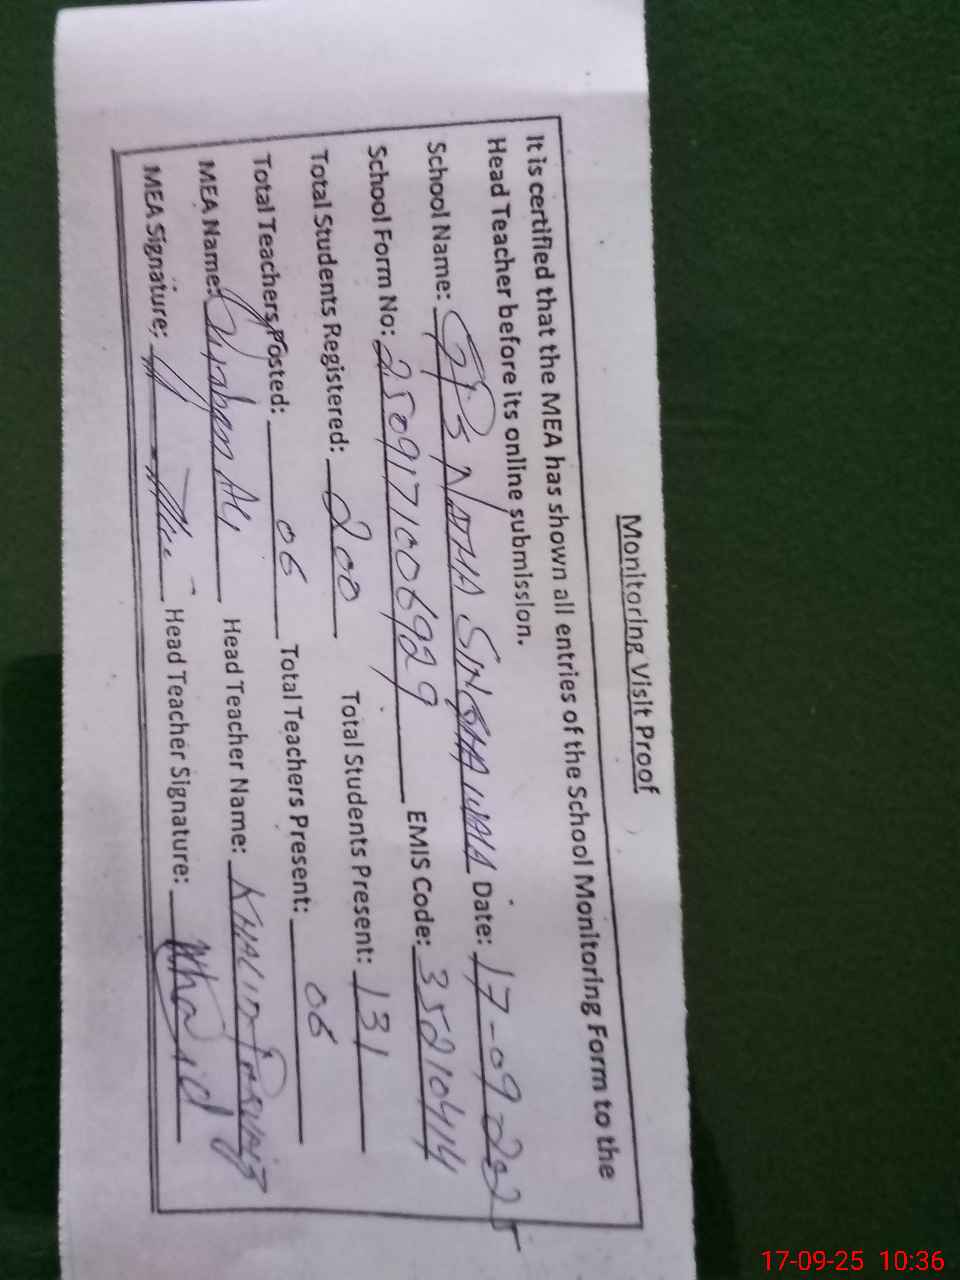 Monitoring Visit Proof
It is certified that the MEA has shown all entries of the School Monitoring Form to the
Head Teacher before its online submission.
School Name: GPS NATHA SINGHA WALA Date: 17-09-2025
School Form No: 2509171006929 EMIS Code: 35210414
Total Students Registered: 200 Total Students Present: 131
Total Teachers Posted: 06 Total Teachers Present: 06
MEA Name: Ali Head Teacher Name: KHALID Parvaiz
MEA Signature: Head Teacher Signature:
17-09-25 10:36